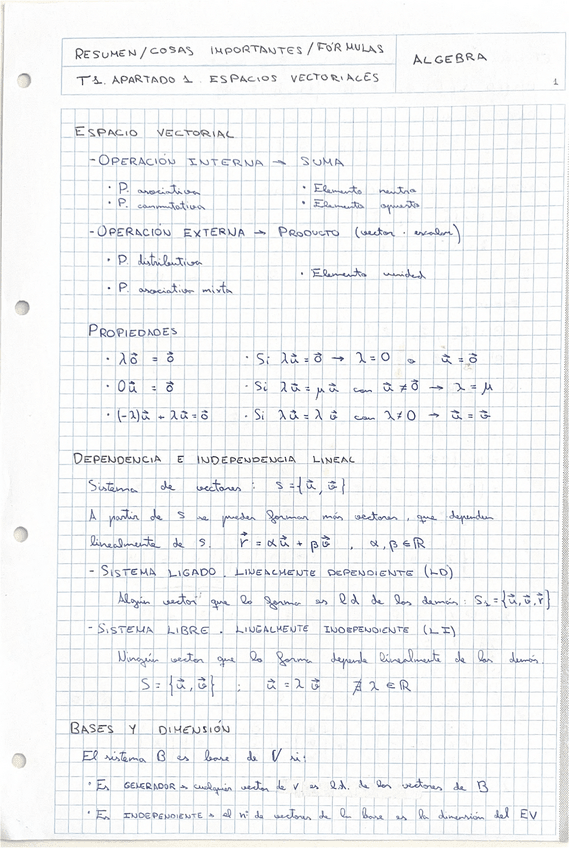 RESUMEN/COSAS IMPORTANTES/FÓRMULAS
T1. APARTADO 1. ESPACIOS VECTORIALES
ALGEBRA
1
ESPACIO VECTORIAL
- OPERACIÓN INTERNA → SUMA
· P. asociativa · Elemento neutro
· P. conmutativa · Elemento opuesto
- OPERACIÓN EXTERNA → PRODUCTO (vector · escalar)
· P. distributiva
· Elemento unidad
· P. asociativa mixta
PROPIEDADES
· λo⃗ = o⃗ · Si λu⃗ = o⃗ → λ = 0 o u⃗ = o⃗
· 0u⃗ = o⃗ · Si λu⃗ = μu⃗ con u⃗ ≠ o⃗ → λ = μ
· (-λ)u⃗ + λu⃗ = o⃗ · Si λu⃗ = λv⃗ con λ ≠ 0 → u⃗ = v⃗
DEPENDENCIA E INDEPENDENCIA LINEAL
Sistema de vectores: S = {u⃗, v⃗}
A partir de S se pueden formar más vectores, que dependen
linealmente de S. r⃗ = αu⃗ + βv⃗, α, β ∈ ℝ
- SISTEMA LIGADO. LINEALMENTE DEPENDIENTE (LD)
Algún vector que lo forma es l.d. de los demás: S₁ = {u⃗, v⃗, r⃗}
- SISTEMA LIBRE. LINEALMENTE INDEPENDIENTE (LI)
Ningún vector que lo forma depende linealmente de los demás.
S = {u⃗, v⃗} ; u⃗ = λv⃗ ∄ λ ∈ ℝ
BASES Y DIMENSIÓN
El sistema B es base de V si:
· Es GENERADOR → cualquier vector de V es l.d. de los vectores de B
· Es INDEPENDIENTE → el nº de vectores de la base es la dimensión del EV